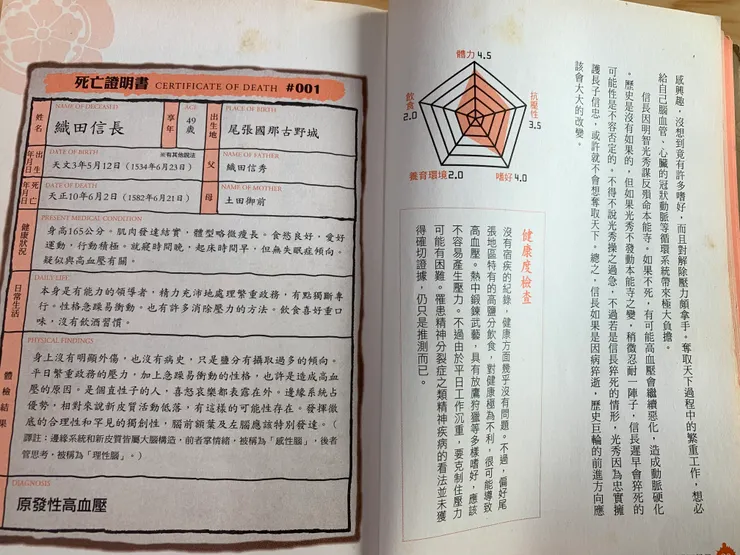 死亡證明書 CERTIFICATE OF DEATH #001
NAME OF DECEASED
姓名
織田信長
AGE
享年
49歲
PLACE OF BIRTH
出生地
尾張國那古野城
DATE OF BIRTH
※有其他說法
出生年月日
天文3年5月12日(1534年6月23日)
NAME OF FATHER
父
織田信秀
DATE OF DEATH
死亡年月日
天正10年6月2日(1582年6月21日)
NAME OF MOTHER
母
土田御前
PRESENT MEDICAL CONDITION
健康狀況
身高165公分。肌肉發達結實,體型略微瘦長。食慾良好,愛好
運動,行動積極。就寢時間晚,起床時間早,但無失眠症傾向。
疑似與高血壓有關。
DAILY LIFE
日常生活
本身是有能力的領導者,精力充沛地處理繁重政務,有點獨斷專
行。性格急躁易衝動。也有許多消除壓力的方法。飲食喜好重口
味,沒有飲酒習慣。
PHYSICAL FINDINGS
體檢結果
身上沒有明顯外傷,也沒有病史,只是鹽分有攝取過多的傾向。
平日繁重政務的壓力,加上急躁易衝動的性格,也許是造成高血
壓的原因。是個直性子的人,喜怒哀樂都表露在外。邊緣系統占
優勢,相對來說新皮質活動低落,有這樣的可能性存在。發揮徹
底的合理性和罕見的獨創性,腦前額葉及左腦應該特別發達。(
譯註:邊緣系統和新皮質皆屬大腦構造,前者掌情緒,被稱為「感性腦」,後者
管思考,被稱為「理性腦」。)
DIAGNOSIS
原發性高血壓
感興趣,沒想到竟有許多嗜好,而且對解除壓力頗拿手。奪取天下過程中的繁重工作,想必
給自己腦血管、心臟的冠狀動脈等循環系統帶來極大負擔。
信長因明智光秀謀反殞命本能寺。如果不死,有可能高血壓會繼續惡化,造成動脈硬化
。歷史是沒有如果的,但如果光秀不發動本能寺之變,稍微忍耐一陣子,信長遲早會猝死的
可能性是不容否定的。不得不說光秀操之過急,不過若是信長猝死的情形,光秀因為忠實擁
護長子信忠,或許就不會想奪取天下。總之,信長如果是因病猝逝,歷史巨輪的前進方向應
該會大大的改變。
體力4.5
抗壓性
3.5
嗜好4.0
養育環境2.0
飲食
2.0
健康度檢查
沒有宿疾的紀錄,健康方面幾乎沒有問題。不過,偏好尾
張地區特有的高鹽分飲食,對健康極為不利,很可能導致
高血壓。熱中鍛鍊武藝,具有放鷹狩獵等多樣嗜好,應該
不容易產生壓力。不過由於平日工作沉重,要克制住壓力
可能有困難。罹患精神分裂症之類精神疾病的看法並未獲
得確切證據,仍只是推測而已。